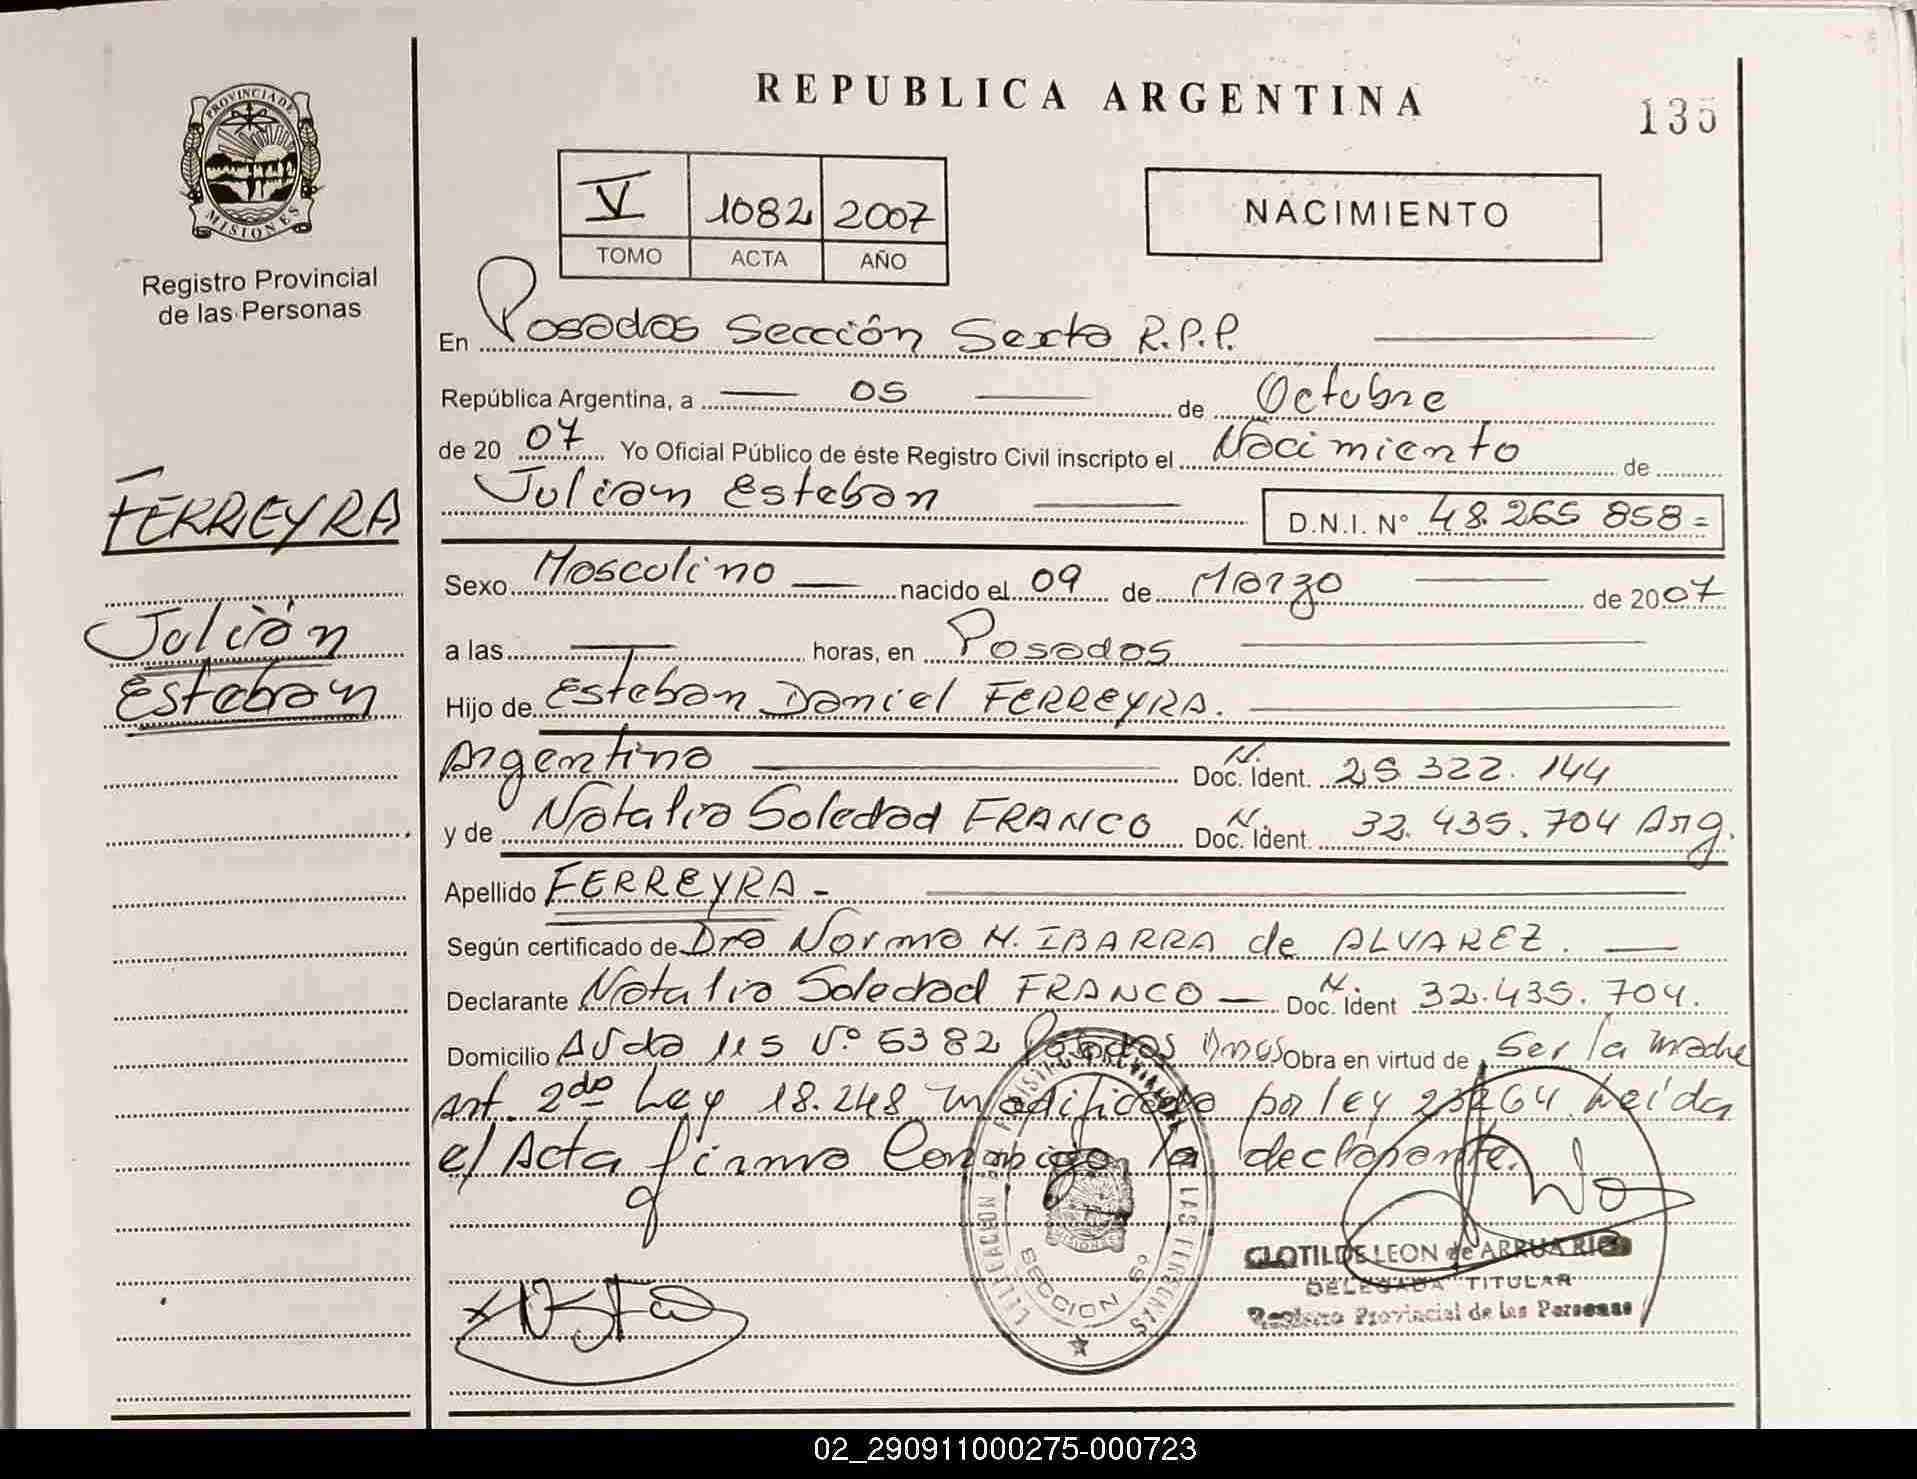 REPUBLICA ARGENTINA
135
PROVINCIA DE MISIONES
Registro Provincial
de las Personas
V 1082 2007
TOMO ACTA AÑO
NACIMIENTO
En Posadas Sección Sexta R.P.P.
República Argentina, a 05 de Octubre
de 2007 Yo Oficial Público de éste Registro Civil inscripto el Nacimiento de
Julian Esteban D.N.I. N° 48.265 858=
FERREYRA
Julián
Esteban
Sexo Masculino nacido el 09 de Marzo de 2007
a las horas, en Posadas
Hijo de Esteban Daniel FERREYRA.
Argentino N. Doc. Ident. 25.322.144
y de Natalia Soledad FRANCO N. Doc. Ident. 32.435.704 Arg.
Apellido FERREYRA -
Según certificado de Dra Norma N. IBARRA de ALVAREZ.
Declarante Natalia Soledad FRANCO N. Doc. Ident 32.435.704.
Domicilio Avda 115 N° 5382 Posadas Mnes Obra en virtud de Ser la madre
art. 2do Ley 18.248 modificada por ley 23264. Leída
el Acta firma Conmigo la declarante.
SECCION 6°
CLOTILDE LEON de ARRUA RIOS
DELEGADA TITULAR
Registro Provincial de las Personas
02_290911000275-000723